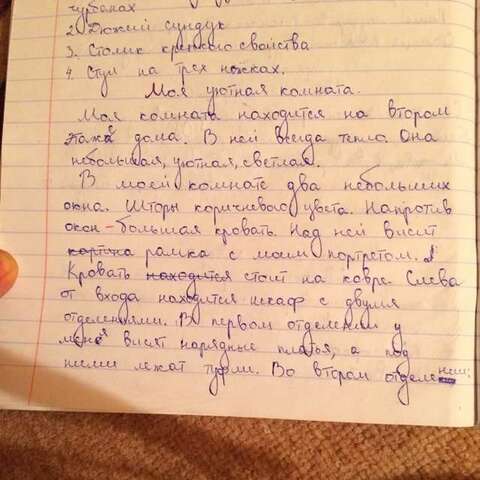 чурбанах
2. Дюжий сундук
3. Столик крепкого свойства
4. Стул на трёх ножках.
Моя уютная комната.
Моя комната находится на втором
этаже дома. В ней всегда тепло. Она
небольшая, уютная, светлая.
В моей комнате два небольших
окна. Шторы коричневого цвета. Напротив
окон - большая кровать. Над ней висит
картина рамка с моим портретом.
Кровать находится стоит на ковре. Слева
от входа находится шкаф с двумя
отделениями. В первом отделении у
меня висят нарядные платья, а под
ними лежат туфли. Во втором отделении: